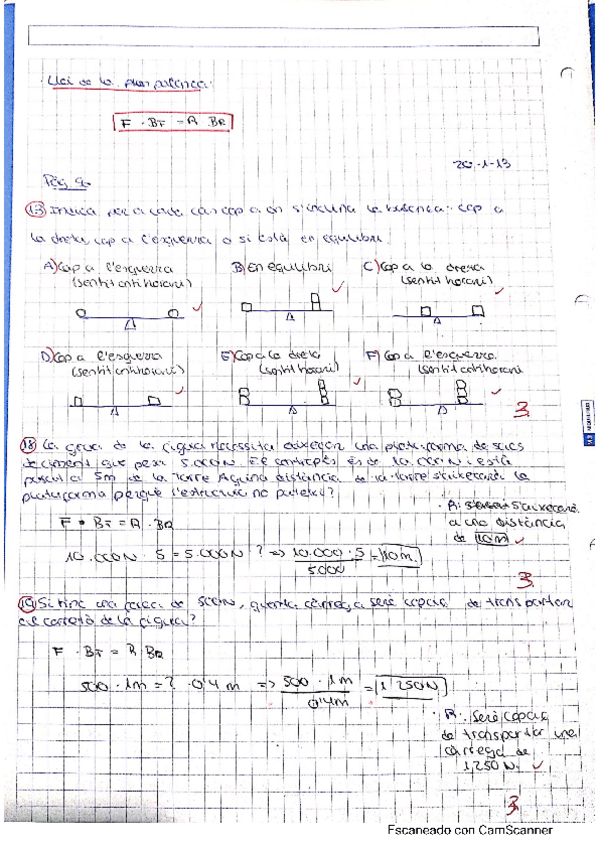 Llei de la palanca:
F · BF = R · BR
20-1-13
Pàg 9.
13 Indica per a cada cas cap a on s'inclina la balança: cap a
la dreta, cap a l'esquerra o si està en equilibri.
A) Cap a l'esquerra (sentit antihorari)
B) En equilibri
C) Cap a la dreta (sentit horari)
D) Cap a l'esquerra (sentit antihorari)
E) Cap a la dreta (sentit horari)
F) Cap a l'esquerra (sentit antihorari)
3
18 La grua de la figura necessita aixecar una plataforma de sacs
de ciment que pesa 5.000N. El contrapès és de 10.000N i està
5m de la torre. A quina distància de la torre s'aixecarà la
plataforma perquè l'estructura no
F · BF = R · BR
R: s'aixecarà
a una distància
de 10m
10.000N · 5 = 5.000N · ? => 10.000 · 5 / 5.000 = 10m.
3
19 Si tinc una força de 500N, quanta càrrega seré capaç de transportar
el carretó de la figura?
F · BF = R · BR
500 · 1m = ? · 0'4m => 500 · 1m / 0'4m = 1'250N
R: Seré capaç
de transportar una
càrrega de
1.250N.
3
Escaneado con CamScanner